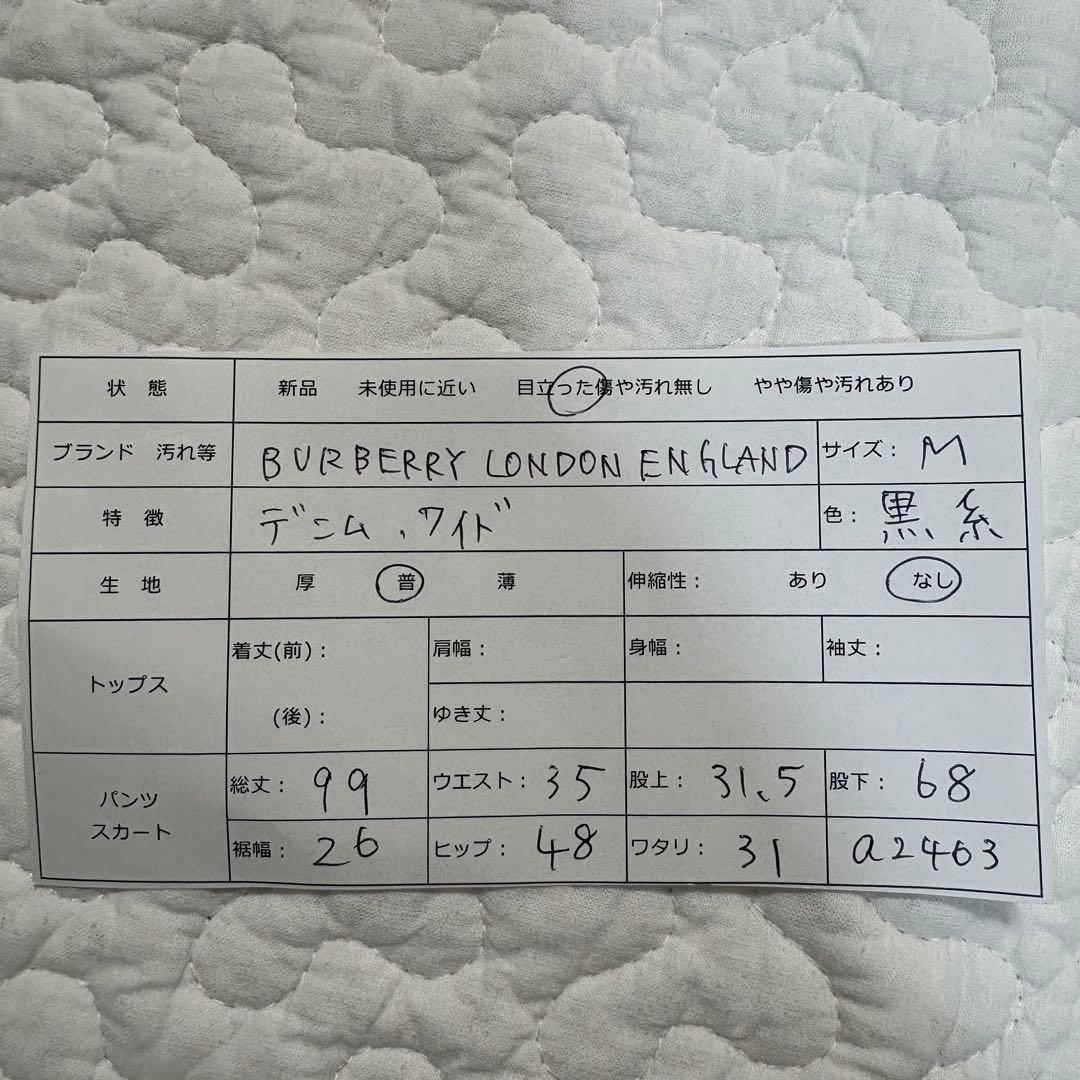 状態 新品 未使用に近い 目立った傷や汚れ無し やや傷や汚れあり
ブランド 汚れ等 BURBERRY LONDON ENGLAND サイズ： M
特徴 デニム、ワイド 色： 黒系
生地 厚 普 薄 伸縮性： あり なし
トップス 着丈(前)： 肩幅： 身幅： 袖丈：
(後)： ゆき丈：
パンツ スカート 総丈： 99 ウエスト： 35 股上： 31.5 股下： 68
裾幅： 26 ヒップ： 48 ワタリ： 31 a2463